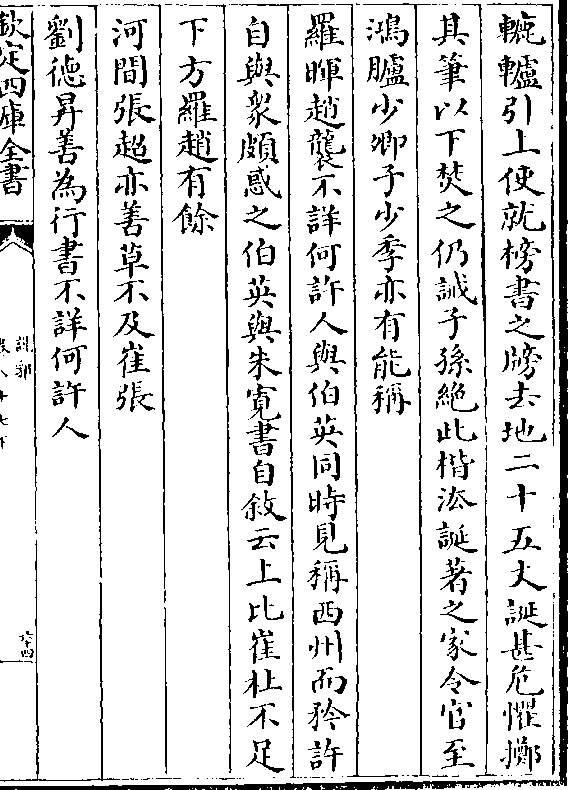 轆轤引上使就榜書之牓去地二十五丈誕甚危懼擲
其筆以下焚之仍誡子孫絶此楷法誕著之家令官至
鴻臚少卿子少季亦有能稱
羅暉趙襲不詳何許人與伯英同時見稱西州而矜許
自與衆頗惑之伯英與朱寛書自敘云上比崔杜不足
下方羅趙有餘
河間張超亦善草不及崔張
劉徳昇善為行書不詳何許人
欽定四庫全書
說郛
六十四